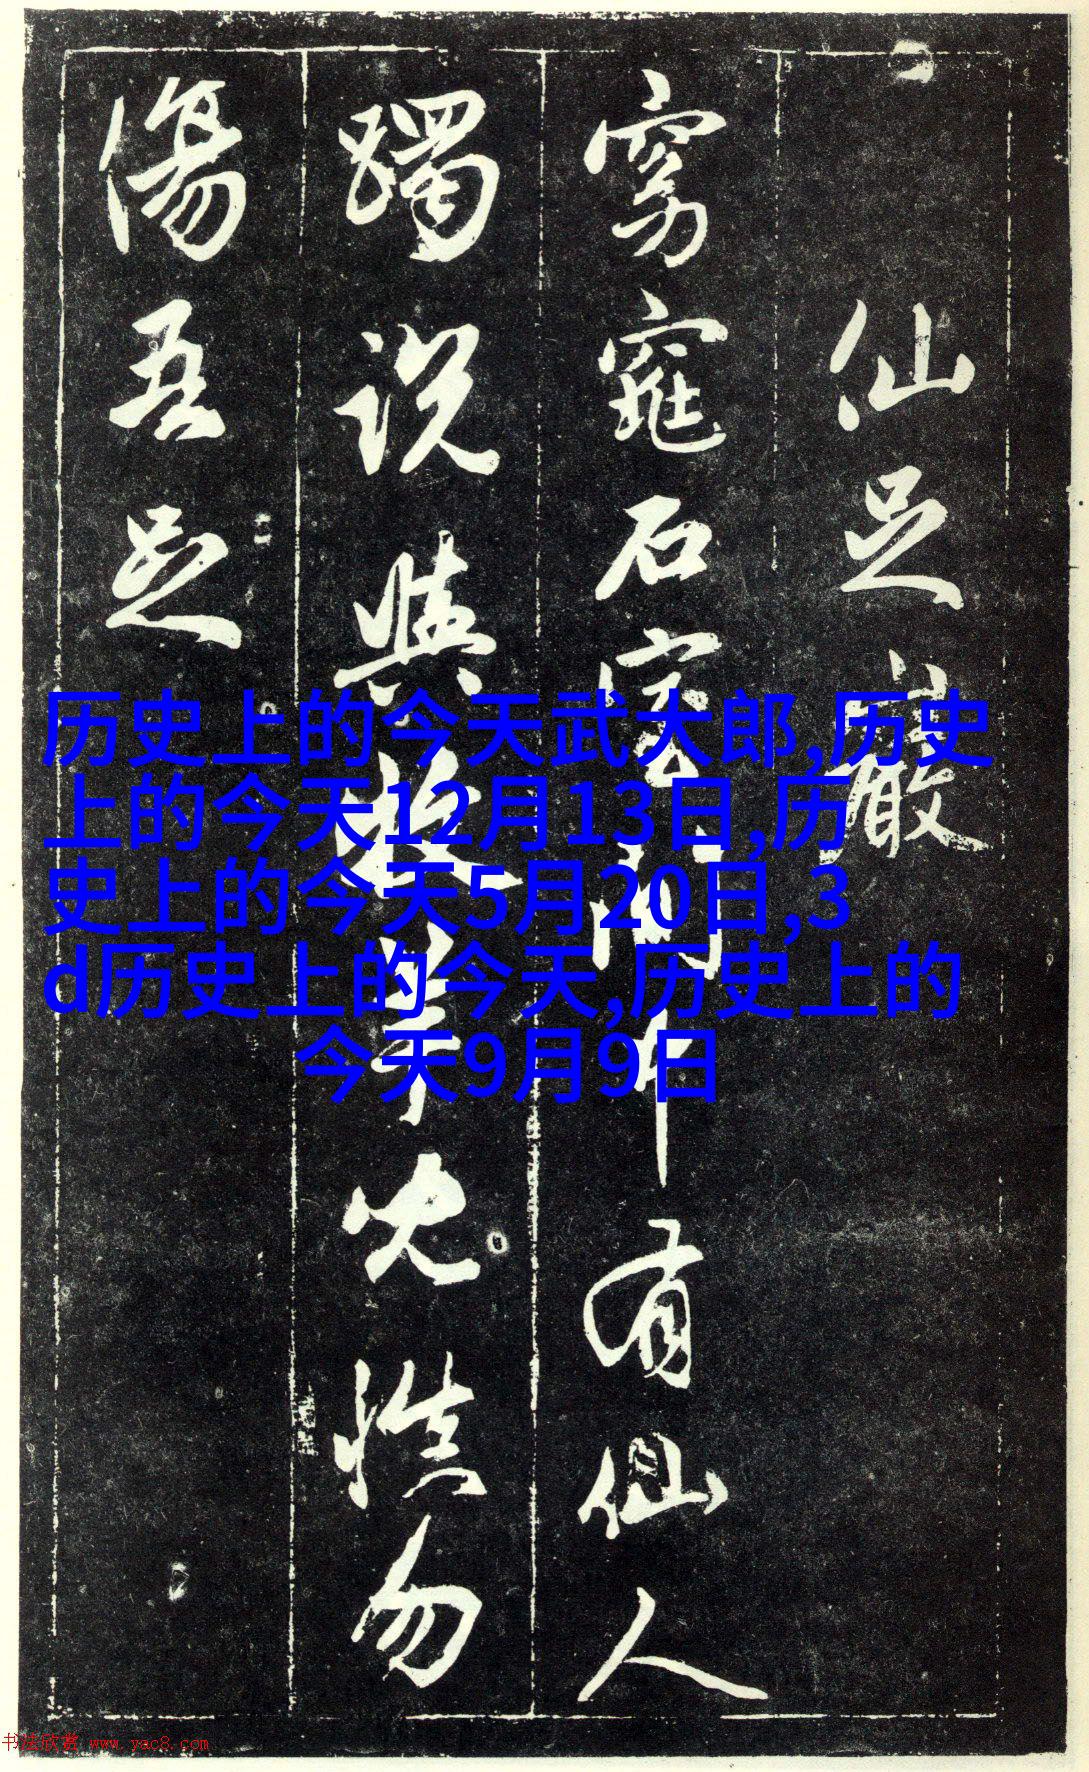 仙足巖
窈窕石室間中有仙人
躅説與牧羊兒慎勿
傷吾足
历史上的今天武大郎,历史
上的今天12月13日,历
史上的今天5月20日,3
d历史上的今天,历史上的
今天9月9日
书法欣赏 www.yac8.com